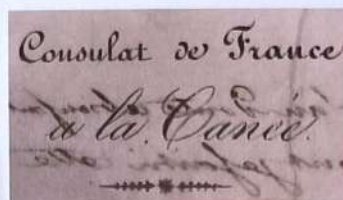 Consulat de France
à la Canée.